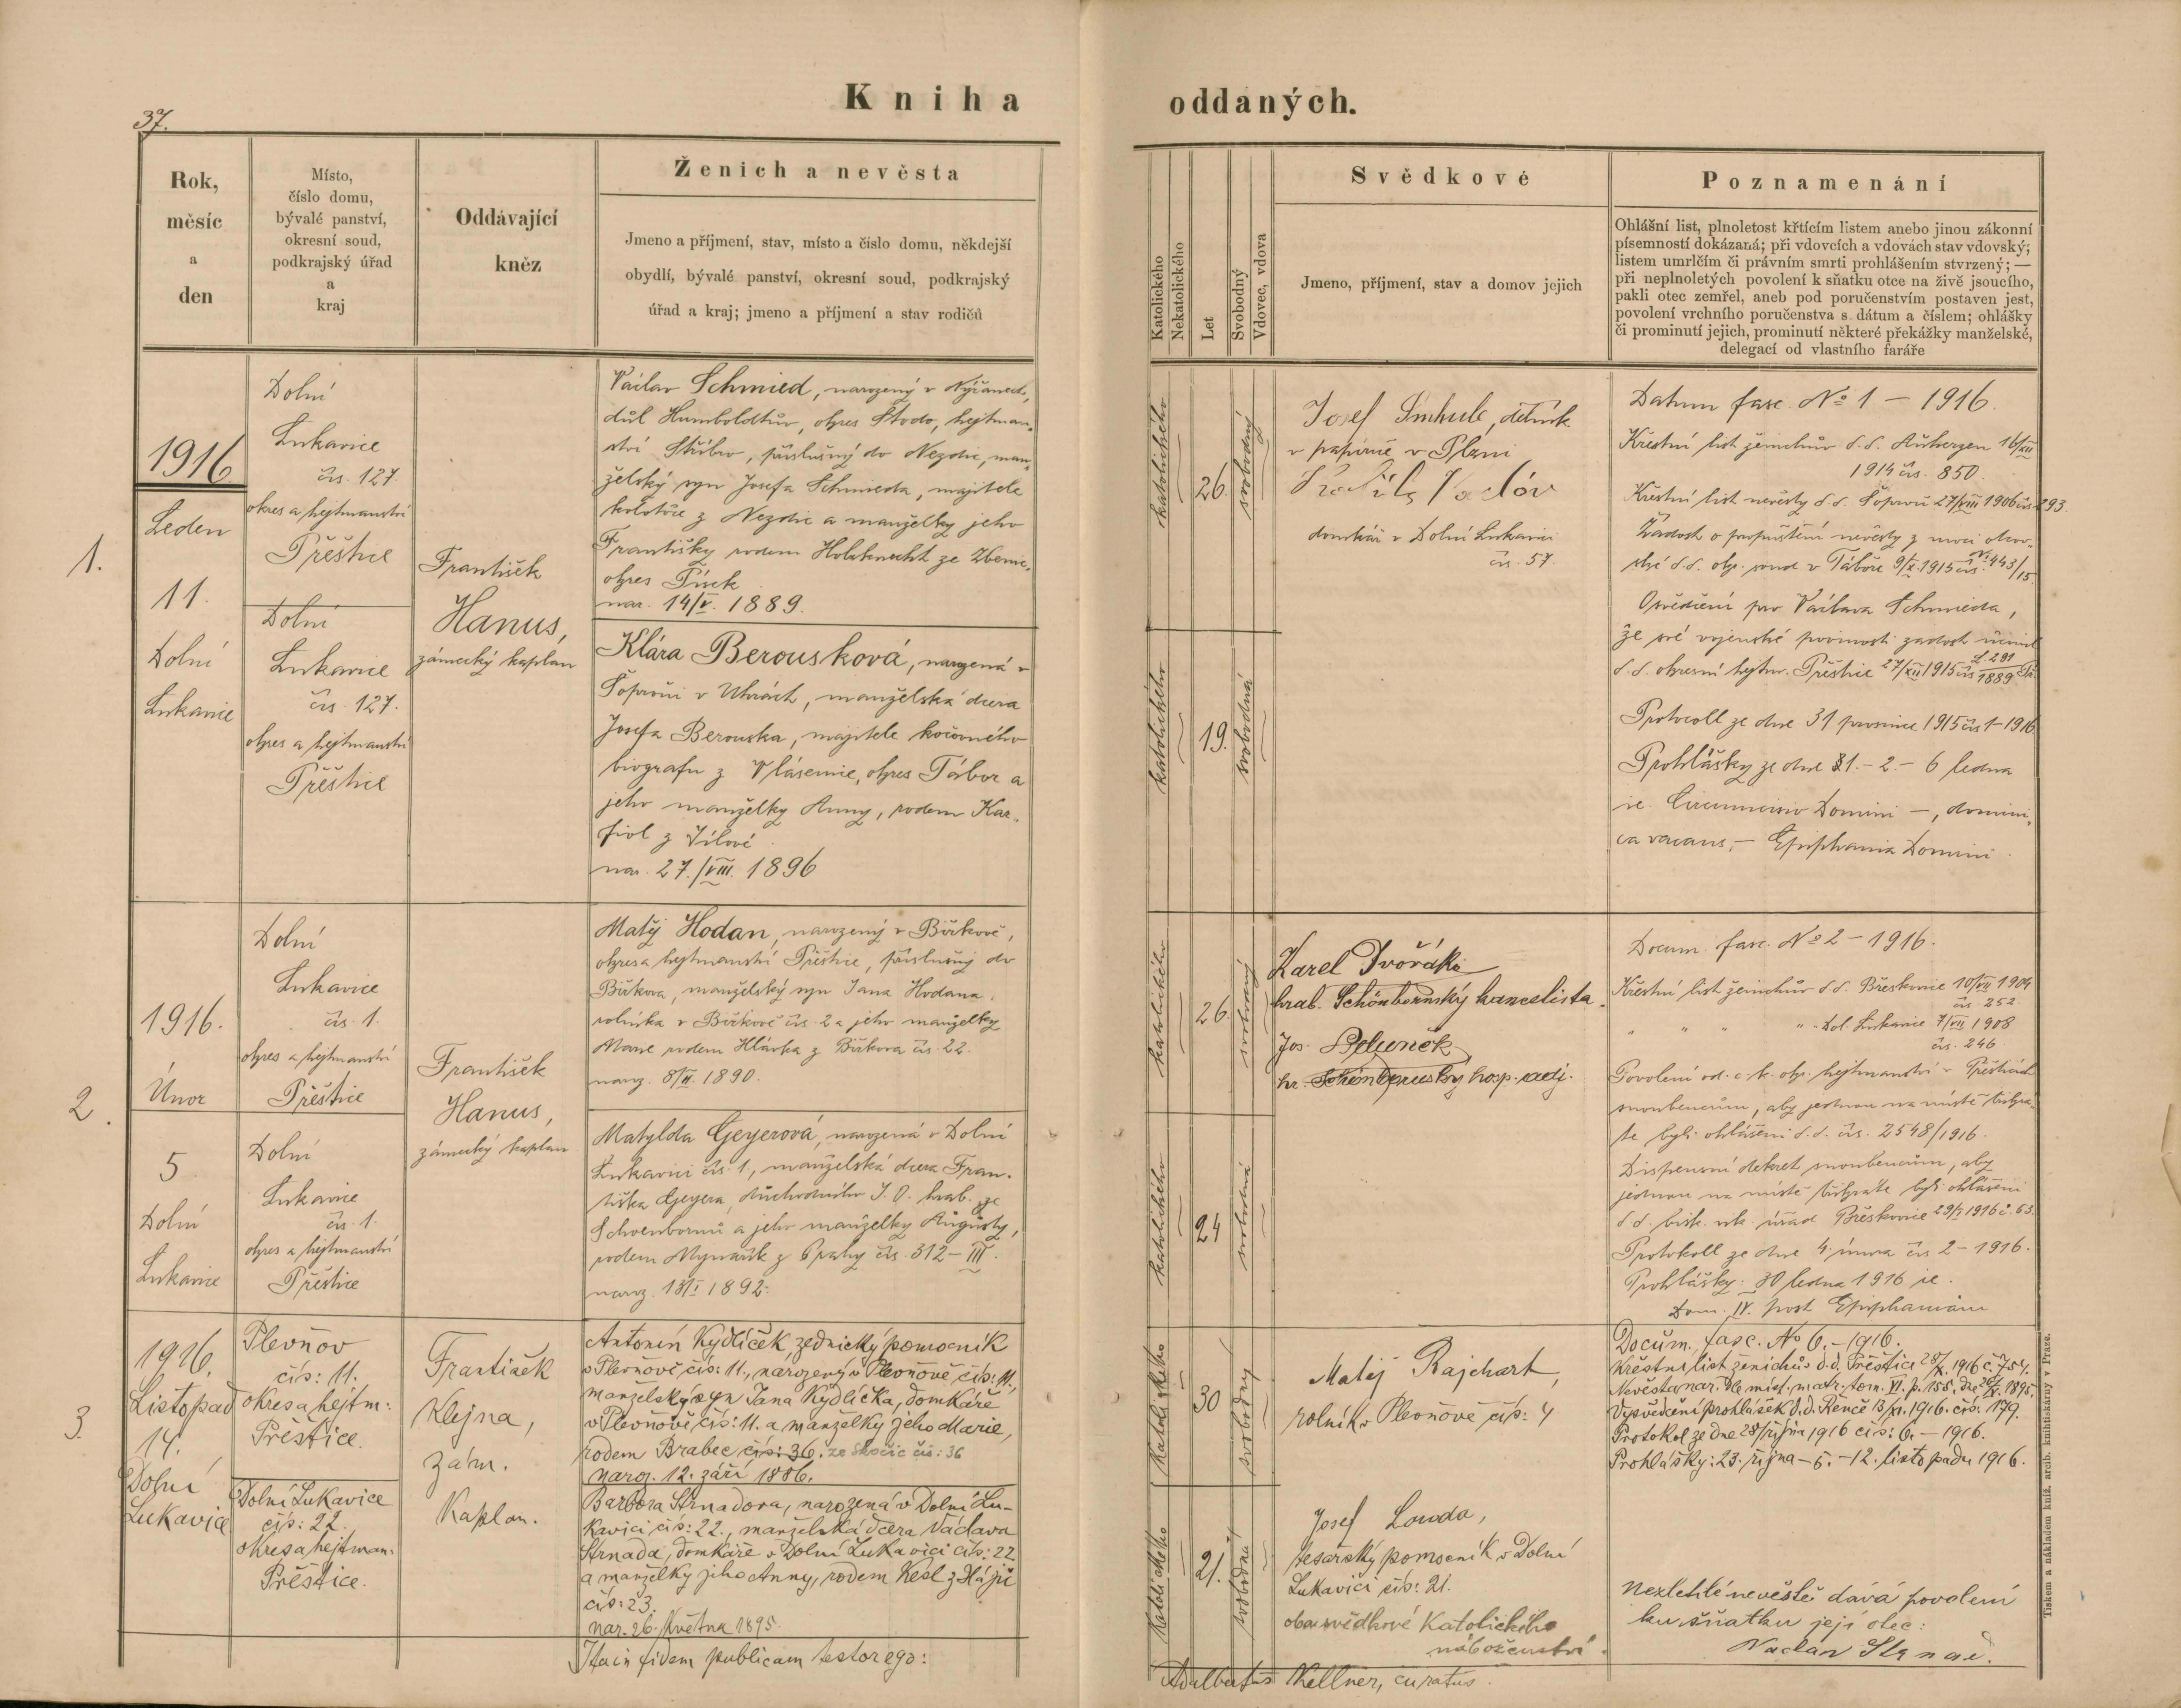 37.
Kniha oddaných.
Rok,
měsíc
a
den
Místo,
číslo domu,
bývalé panství,
okresní soud,
podkrajský úřad
a
kraj
Oddávající
kněz
Ženich a nevěsta
Jmeno a příjmení, stav, místo a číslo domu, někdejší
obydlí, bývalé panství, okresní soud, podkrajský
úřad a kraj; jmeno a příjmení a stav rodičů
Katolického
Nekatolického
Let
Svobodný
Vdovec, vdova
Svědkové
Jmeno, příjmení, stav a domov jejich
Poznamenání
Ohlášní list, plnoletost křtícím listem anebo jinou zákonní
písemností dokázaná; při vdovcích a vdovách stav vdovský;
listem umrlčím či právním smrti prohlášením stvrzený; —
při neplnoletých povolení k sňatku otce na živě jsoucího,
pakli otec zemřel, aneb pod poručenstvím postaven jest,
povolení vrchního poručenstva s dátum a číslem; ohlášky
či prominutí jejich, prominutí některé překážky manželské,
delegací od vlastního faráře
1.
1916
Leden
11.
Dolní
Lukavice
Dolní
Lukavice
čís. 127.
okres a hejtmanství
Přeštice
Dolní
Lukavice
čís. 127.
okres a hejtmanství
Přeštice
František
Hanus,
zámecký kaplan
Václav Schmied, narozený v Nýřanech,
důl Humboldtův, okres Stodo, hejtman-
ství Stříbro, příslušný do Nezdic, man-
želský syn Josefa Schmieda, majitele
kolotoče z Nezdic a manželky jeho
Františky rodem Holoknecht ze
okres Písek
nar. 14/V. 1889.
Klára Berousková, narozená v
Šoproni v Uhrách, manželská dcera
Josefa Berouska, majitele kočovného
biografu z Vlásenice, okres Tábor a
jeho manželky Anny, rodem Kar-
fiol z Jílové.
nar. 27./VIII. 1896
katolického
26.
svobodný
katolického
19.
svobodná
Josef Smhule, dělník
v papírně v Plzni
domkář v Dolní Lukavici
čís. 57.
Datum fasc. No 1 – 1916.
Křestní list ženichův d.d. Auherzen 16/XII
1914 čís. 850.
Křestní list nevěsty d.d. Šoproň 27/VIII 1906 čís. 293.
Žádost o propuštění nevěsty z moci otcov-
ské d.d. okr. soud v Táboře 9/X 1915 čís. Nc 443/15.
Osvědčení pro Václava Schmieda,
že své vojenské povinnosti zadost učinil
d.d. okresní hejtm. Přeštice 27/XII 1915 čís. 281/1889 Př.
Protocoll ze dne 31 prosince 1915 čís 1–1916
Prohlášky ze dne 1.–2.–6 ledna
ie. Circumcisio Domini –, domini-
ca vacans, – Epiphania Domini.
2.
1916.
Únor
5
Dolní
Lukavice
Dolní
Lukavice
čís. 1.
okres a hejtmanství
Přeštice
Dolní
Lukavice
čís. 1.
okres a hejtmanství
Přeštice
František
Hanus,
zámecký kaplan
Matěj Hodan, narozený v Bižkově,
okres a hejtmanství Přeštice, příslušný do
Bižkova, manželský syn Jana Hodana,
rolníka v Bižkově čís. 2 a jeho manželky
Marie rodem Hlávka z Bižkova čís. 22.
naroz. 8/II. 1890.
Matylda Geyerová, narozená v Dolní
Lukavici čís. 1., manželská dcera Fran-
tiška Geyera, důchodního J. O. hrab. ze
Schoenbornů a jeho manželky Augusty,
rodem Mynařík z Prahy čís. 312–III.
naroz. 18/I 1892.
katolického
26.
svobodný
katolického
24
svobodná
Karel Dvořák
hrab. Schönbornský kancelista.
Jos. Beluněk
hr. Schönbornský hosp. adj.
Docum. fasc. No 2 – 1916.
Křestní list ženichův d.d. Břeskovice 10/VII 1904
čís. 252.
" " " " Dol. Lukavice 7/VII 1908
čís. 246
Povolení od c.k. okr. hejtmanství v Přešticích
snoubencům, aby jednou na místě třikrá-
te byli ohlášeni d.d. čís. 2548/1916.
Dispensní dekret snoubencům, aby
jednou na místě třikráte byli ohlášeni
d.d. bisk. vik. úřad Břeskovice 29/I 1916 č. 63.
Protokoll ze dne 4. února čís 2–1916.
Prohlášky: 30 ledna 1916 ie.
Dom. IV. post Epiphaniam
3.
1916.
Listopad
14.
Dolní
Lukavice
Plevňov
čís: 11.
okres a hejtm:
Přeštice.
Dolní Lukavice
čís: 22.
okres a hejtman:
Přeštice.
František
Klejna,
zám.
Kaplan.
Antonín Kydlíček, zednický pomocník
v Plevňově čís: 11., narozený v Plevňově čís: 11,
manželský syn Jana Kydlíčka, domkáře
v Plevňově čís: 11. a manželky jeho Marie,
rodem Brabec čís: 36. ze Skočic čís: 36
naroz. 12. září 1886.
Barbora Strnadova, narozená v Dolní Lu-
kavici čís: 22., manželská dcera Václava
Strnada, domkáře v Dolní Lukavici čís: 22
a manželky jeho Anny, rodem Kesl z Háje
čís: 23.
nar. 26. května 1895.
Katolického
30
svobodný
Katolického
21.
svobodná
Matěj Rajchart,
rolník v Plevňově čís: 4
Josef Louda,
tesařský pomocník v Dolní
Lukavici čís: 21.
oba svědkové Katolického
náboženství.
Docum. fasc. No 6.–1916.
Křestní list ženichův d.d. Přeštice 28/X 1916 č. 754.
Nevěsta nar. dle míst. matr. tom. VI. p. 158.
Vysvědčení prohlášek d.d. Řenče 13/XI. 1916. čís: 179.
Protokol ze dne 28/října 1916 čís: 6. – 1916.
Prohlášky: 23. října – 5. – 12. listopadu 1916.
Nezletilé nevěstě dává povolení
ku sňatku její otec:
Vaclav Strnad.
Ita in fidem publicam testor ego:
Adalbertus Kellner, curatus.
Tiskem a nákladem kníž. arcib. knihtiskárny v Praze.